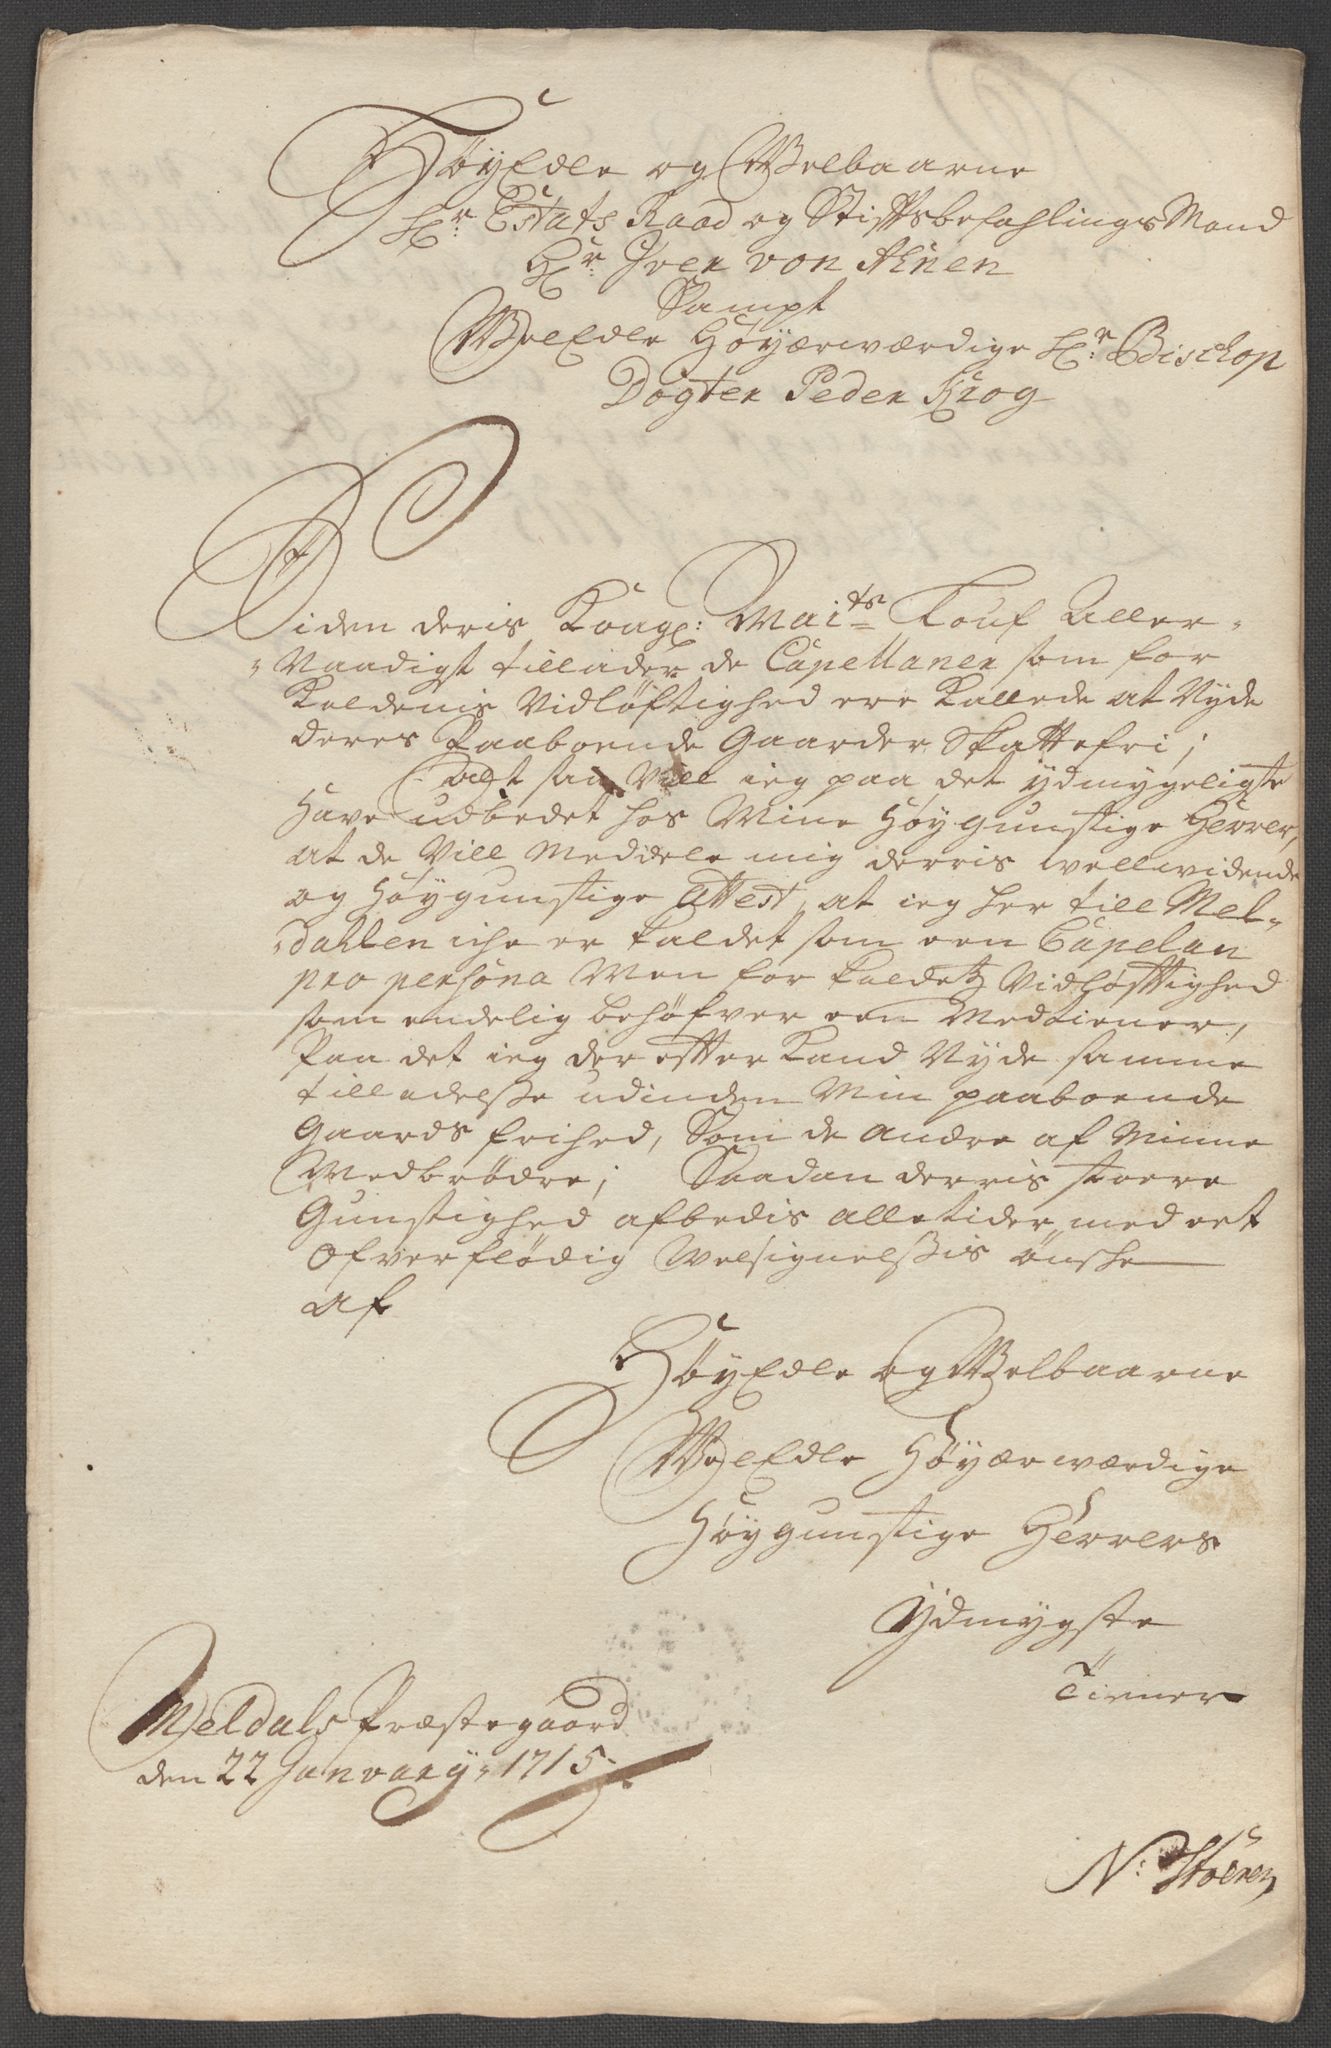 HøyEdle og Welbaarne
Hr: Estats Raad og StiftsbefahlingsMand
Hr: Iver von Ahnen
Sampt
WelEdle Høyærwærdige Hr: Bischop
Dogter Peder Krog
Siden deris Kongl: Maits Aller-
-Naadigst tillader de Capellaner som for
Kaldenis Vidløftighed ere Kallede at Nyde
deres Paaboende Gaarder Skattefri;
Altsaa Vill ieg paa det ydmygeligste
have udbedet hos Mine Høygunstige Herrer,
at de Vill Meddele mig derris wellwidende
og Høygunstige Attest, at ieg her till Mel-
-dahlen iche er kaldet som een Capelan
pro persona Men for kaldetz Vidløfftighed
som endelig behøfver een Medtiener,
Paa det ieg der effter kand Nyde samme
tilladelsse udinden Min paaboende
Gaards frihed, Som de andre af Minne
Medbrødre; Saadan derris stoere
Gunstighed afbedis alletider med eet
Ofverflødig Welsignelssis ønske
af
HøyEdle og Welbaarne
WelEdle Høyærwærdige
Høygunstige Herrers
Ydmygste
Tiener
Meldals Præstegaard
den 22 January 1715
N: Støren